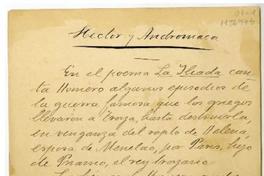 Hector y Andromaca
En el poema La Iliada can-
ta Homero algunos episodios de
la guerra famosa que los griegos
llevaron a Troya, hasta destruirla,
en venganza del rapto de Helena,
esposa de Menelao, por Paris, hijo
de Priamo, el rey troyano